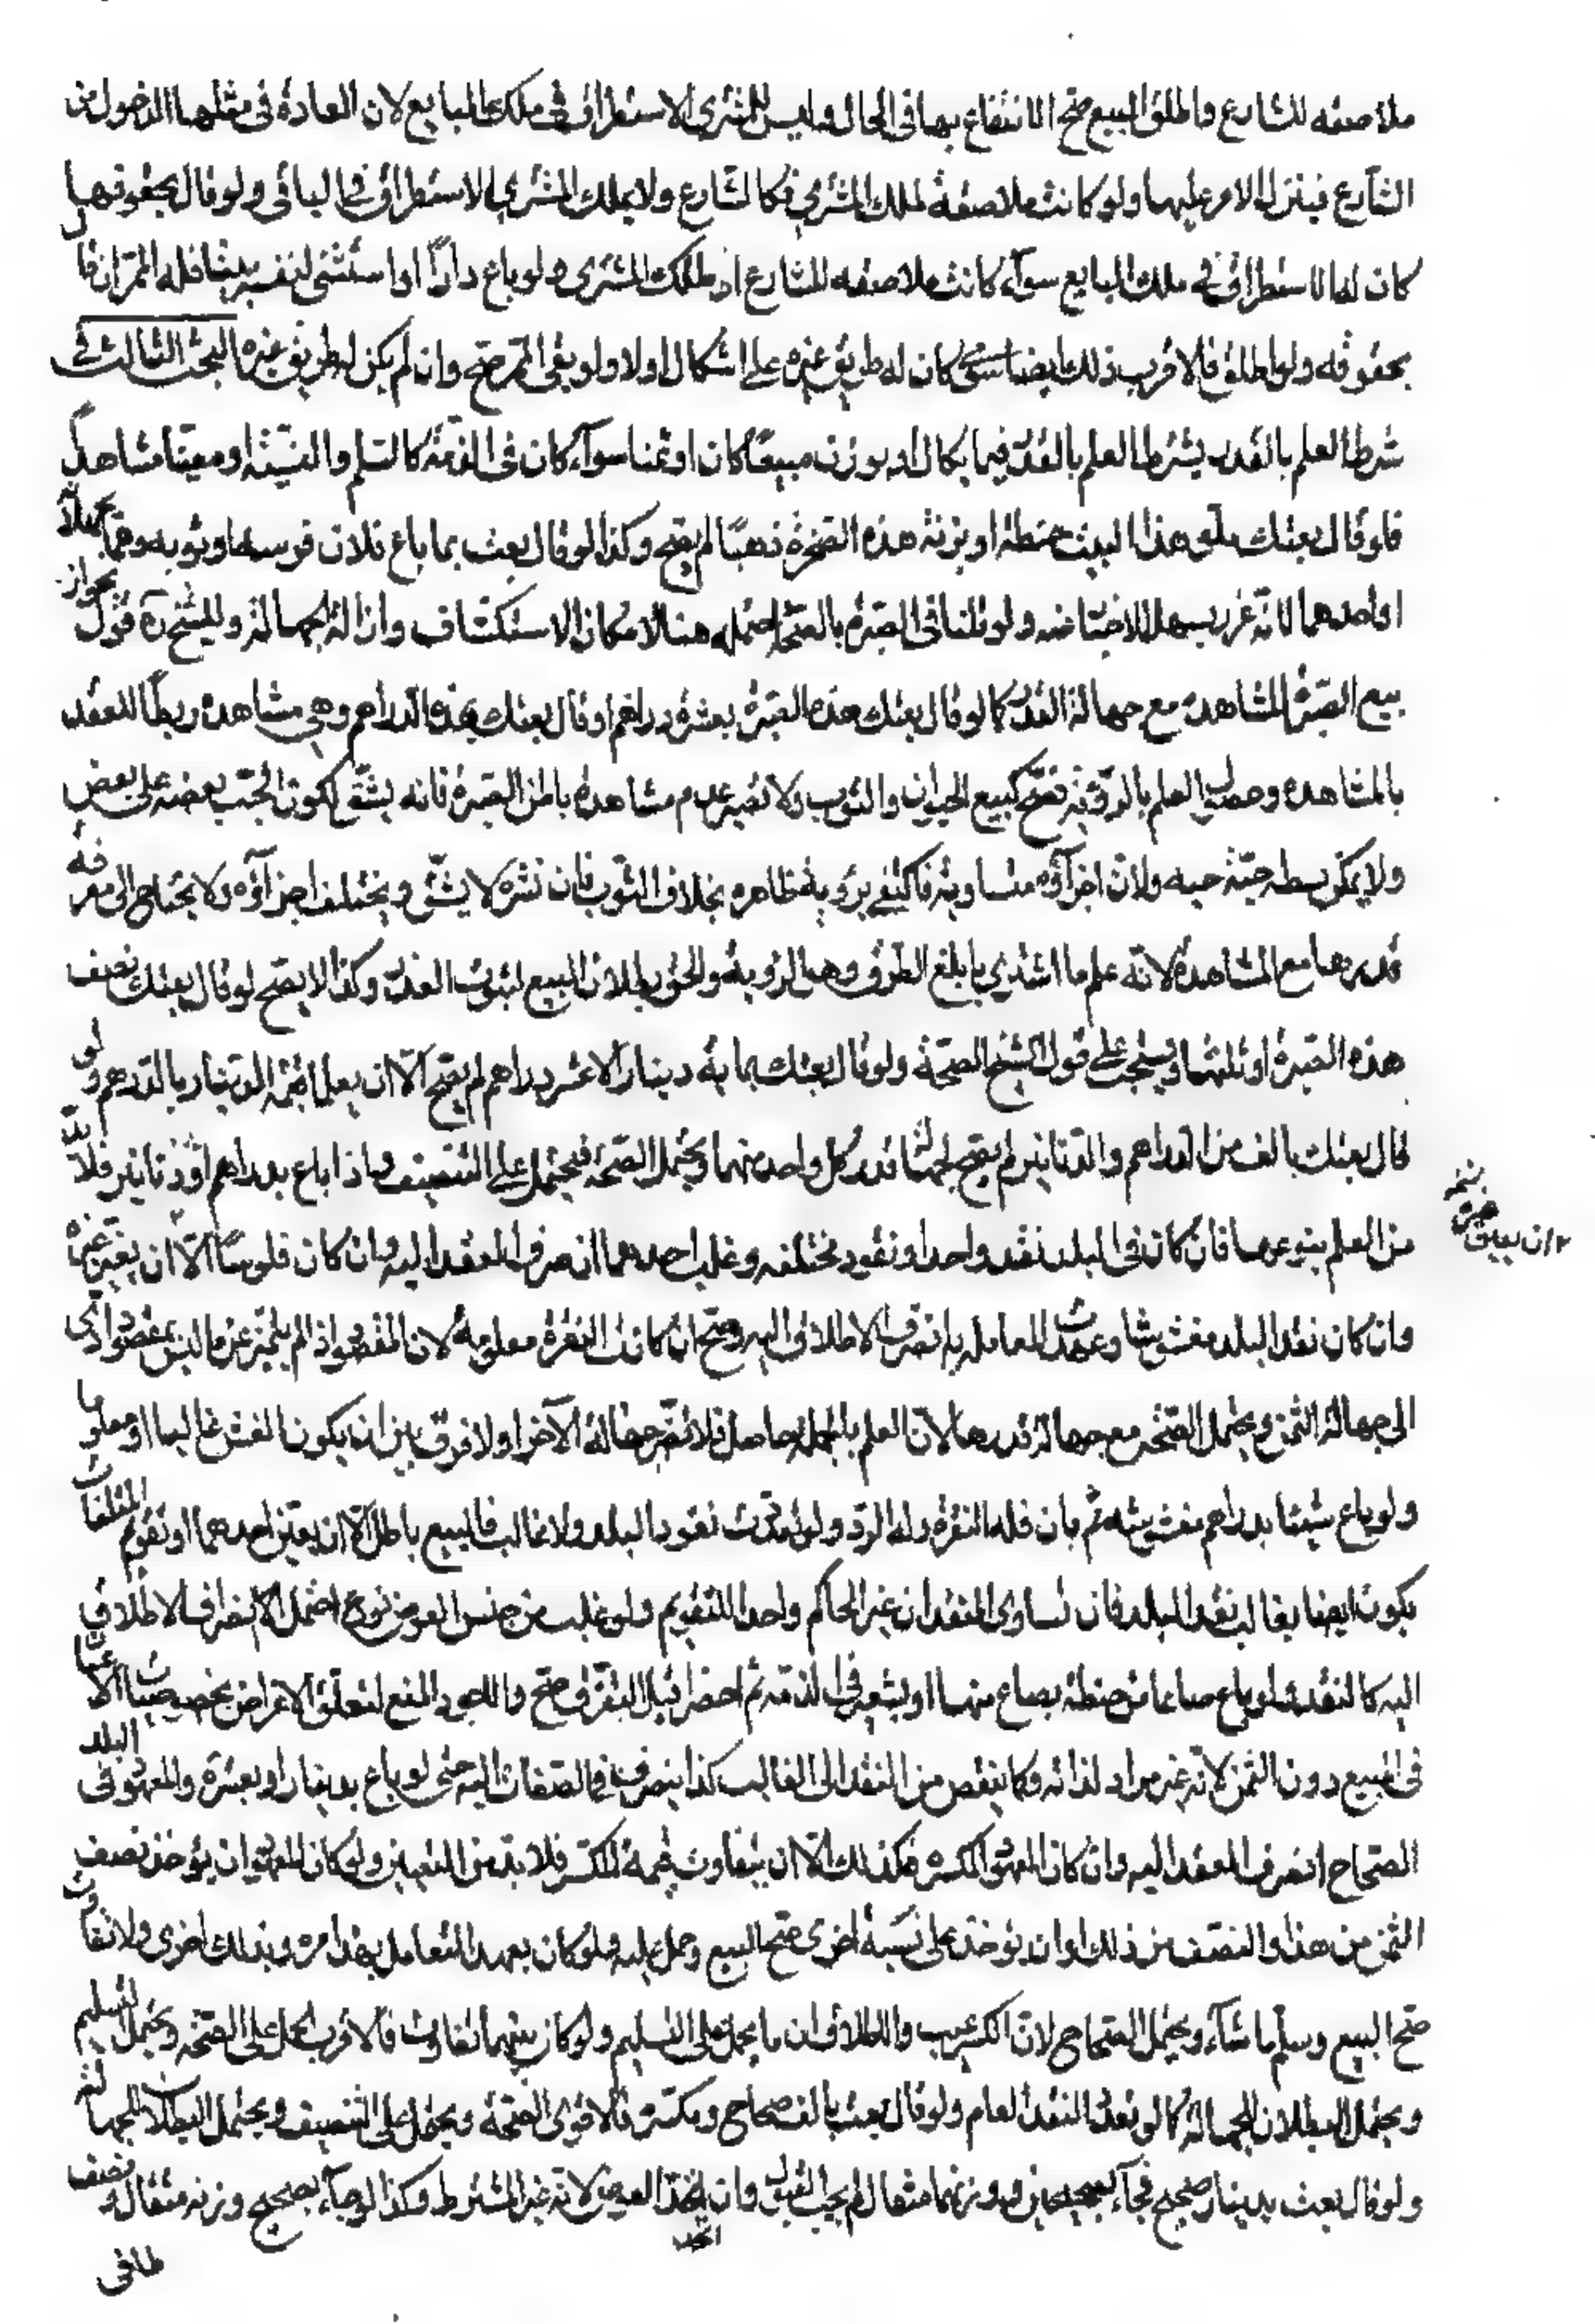 ملاصقه للشارع واطلق البيع صح الانتفاع بها فى الحال وليس للمشترى الاستطراق فى ملك البايع لان العادة فى مثلها الدخول من
الشارع فينزل الامر عليها ولو كانت ملاصقة لملك المشترى فكالشارع ولا يملك المشترى الاستطراق فى الباقى ولو قال بحقوقها
كان له الاستطراق فى ملك البايع سوآء كانت ملاصقه للشارع او لملك المشترى ولو باع دارًا واستثنى لنفسه بيتا فله الممر ان قال
بحقوقه ولو اطلق فالاقرب ذلك ايضا سوآء كان له طريق غيره على اشكال اولا ولو نفى الممر صح وان لم يكن له طريق غيره البحث الثالث فى
شرط العلم بالقدر يشترط العلم بالقدر فيما يكال او يوزن مبيعًا كان او ثمنا سوآء كان فى الذمة كالسلم والنسيئة او معينا مشاهدًا
فلو قال بعتك ملء هذا البيت حنطة او بزنة هذه الصخرة ذهبًا لم يصح وكذا لو قال بعت بما باع فلان فرسه او ثوبه وهما يجهلانه
او احدهما لانه غرر يسهل الاجتناب عنه ولو قلنا فى الصبرة بالصحة احتمله هنا لامكان الاستكشاف وازالة الجهالة وللشيخ ره قول بجواز
بيع الصبرة المشاهدة مع جهالة القدر كما لو قال بعتك هذه الصبرة بعشرة دراهم او قال بعتك بهذه الدراهم وهى مشاهدة ربطًا للعقد
بالمشاهدة وحصول العلم بالرؤية فصح كبيع الحيوان والثوب ولا يضر عدم مشاهدة باطن الصبرة فانه يشق لكون الحب بعضه على بعض
ولا يمكن بسطه حبّة حبه ولان اجزآؤه متساوية فاكتفى برؤية ظاهره بخلاف الثوب فان نشره لا يشق ويختلف اجزآؤه ولا يحتاج الى معرفة
قدرها مع المشاهدة لانه علم ما اشترى بابلغ الطرق وهى الرؤية والحق بطلان البيع لثبوت الغرر وكذا لا يصح لو قال بعتك نصف
هذه الصبرة او ثلثها ويجب على قول الشيخ الصحة ولو قال بعتك بمايه دينار الا عشر دراهم لم يصح الّا ان يعلما قيمة الدينار بالدرهم ولو
قال بعتك بالف من الدراهم والدنانير لم يصح لجهالة قدر كل واحد منهما ويحتمل الصحة فيحمل على التنصيف واذا باع بدراهم او دنانير فلا بد
من العلم بنوعها فان كان فى البلد نقد واحد او نقود مختلفه وغلب احدهما انصرف العقد اليه وان كان فلوسًا الّا ان يعين غيره
وان كان نقد البلد مغشوشا وعهدت المعامله به انصرف الاطلاق اليه وصح ان كانت النقرة معلومة لان المقصود اذا لم يتميز عن ما ليس بمقصود ادى
الى جهالة الثمن ويحتمل الصحة مع جهالة قدرها لان العلم بالجملة حاصل فلا تضر جهالة الاجزاء ولا فرق بين ان يكون الغش غالبا او مغلوبا
ولو باع شيئا بدراهم مغشوشة ثم بان فله النقرة وله الرد ولو تعددت نقود البلد ولا غالب فالبيع باطل الا ان يعين احدهما او تقويم المتلفات
يكون ايضا بغالب نقد البلد فان تساوى النقدان عين الحاكم واحدا للتقويم ولو غلب من جنس العروض نوع احتمل انصراف الاطلاق
اليه كالنقد فلو باع صاعا من حنطة بصاع منها او بشعير فى الذمة ثم احضر قبل التفرق صح والاجود المنع لتعلق الاغراض بخصوصيات الاعيان
فى المبيع دون الثمن لانه غير مراد لذاته وكما ينصرف من النقد الى الغالب كذا ينصرف فى الصفات اليه حتى لو باع بدينار او بعشرة والمعهود فى البلد
الصحاح انصرف العقد اليه وان كان المعهود المكسره فكذلك الّا ان يتفاوت قيمة المكسر فلا بد من التعيين ولو كان المعهود ان يؤخذ نصف
الثمن من هذا والنصف من ذلك او ان يؤخذ على نسبة اخرى صح البيع وحمل عليه ولو كان يعهد التعامل بهذا مره وبذلك اخرى ولا تفاوت
صح البيع وسلم ما شآء ويحتمل الصحاح لان الكسر عيب والاطلاق ان ما يحمل على السليم ولو كان بينهما تفاوت فالاقرب الحمل على الصحة ويحتمل التسليم
ويحتمل البطلان للجهالة كما لو تعدد النقد العام ولو قال بعت بالف صحاح ومكسره فالاقوى الصحة ويحمل على التنصيف ويحتمل البطلان للجهالة
ولو قال بعت بدينار صحيح فجآء بصحيحين وزنهما مثقال لم يجب القبول وان اتحد العوض لانه غير المشترط وكذا لو جآء بصحيح وزنه مثقال ونصف
اتحد